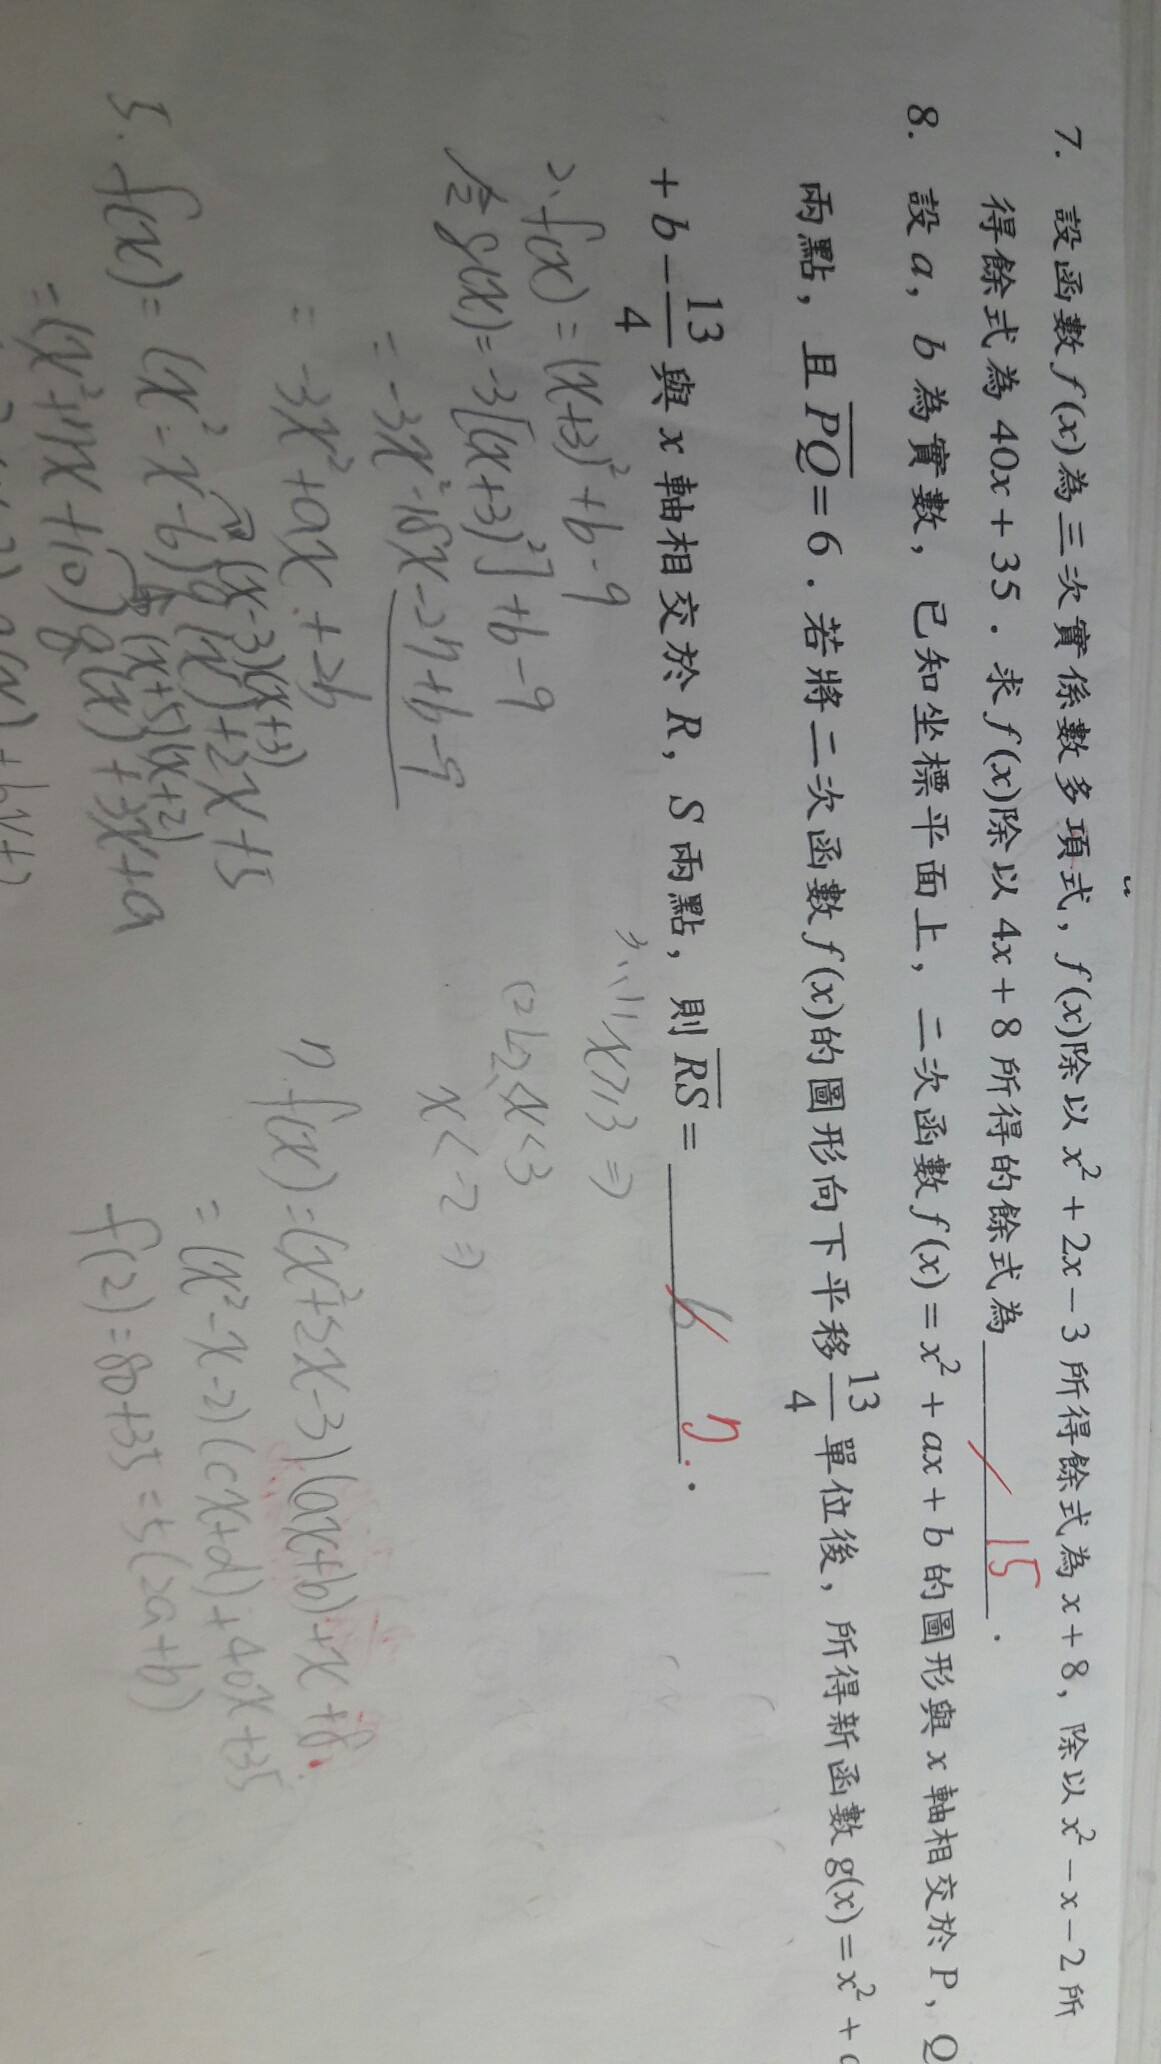 7. 設函數 f(x)為三次實係數多項式，f(x)除以 x² + 2x − 3 所得餘式為 x + 8，除以 x² − x − 2 所
得餘式為 40x + 35．求 f(x)除以 4x + 8 所得的餘式為 15．
8. 設 a，b 為實數，已知坐標平面上，二次函數 f(x) = x² + ax + b 的圖形與 x 軸相交於 P、Q
兩點，且 PQ = 6．若將二次函數 f(x)的圖形向下平移 13/4 單位後，所得新函數 g(x) = x² +
+ b − 13/4 與 x 軸相交於 R，S 兩點，則 RS = 6 7．
2. f(x) = (x+3)² + b - 9
g(x) = -3[(x+3)²] + b - 9
= -3x² - 18x - 27 + b - 9
= -3x² + ax + 2b
5. f(x) = (x² - x - 6) (x) + 2x + 5
(x-3)(x+3)
= (x² + 7x + 10) g(x) + 3x + a
(x+5)(x+2)
3. (1) x ≥ 3 ⇒
(2) -2 < x < 3
x < -2 ⇒
7. f(x) = (x² + 2x - 3)(ax + b) + x + 8
= (x² - x - 2)(cx + d) + 40x + 35
f(2) = 80 + 35 = 5(2a + b)